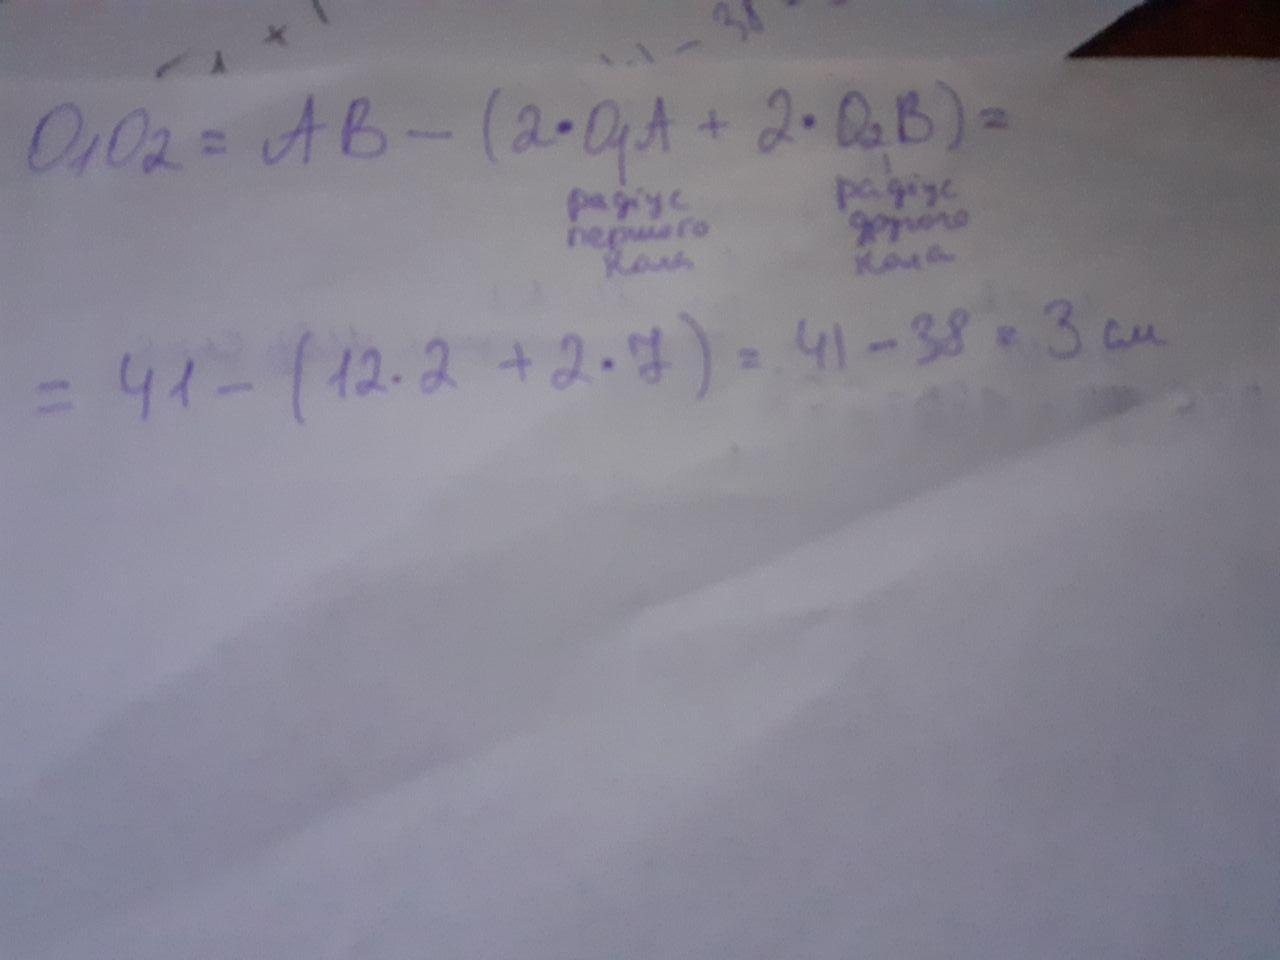 38
O₁O₂ = AB – (2•O₁A + 2•O₂B) =
радіус першого кола
радіус другого кола
= 41 – (12·2 + 2·7) = 41 – 38 = 3 см